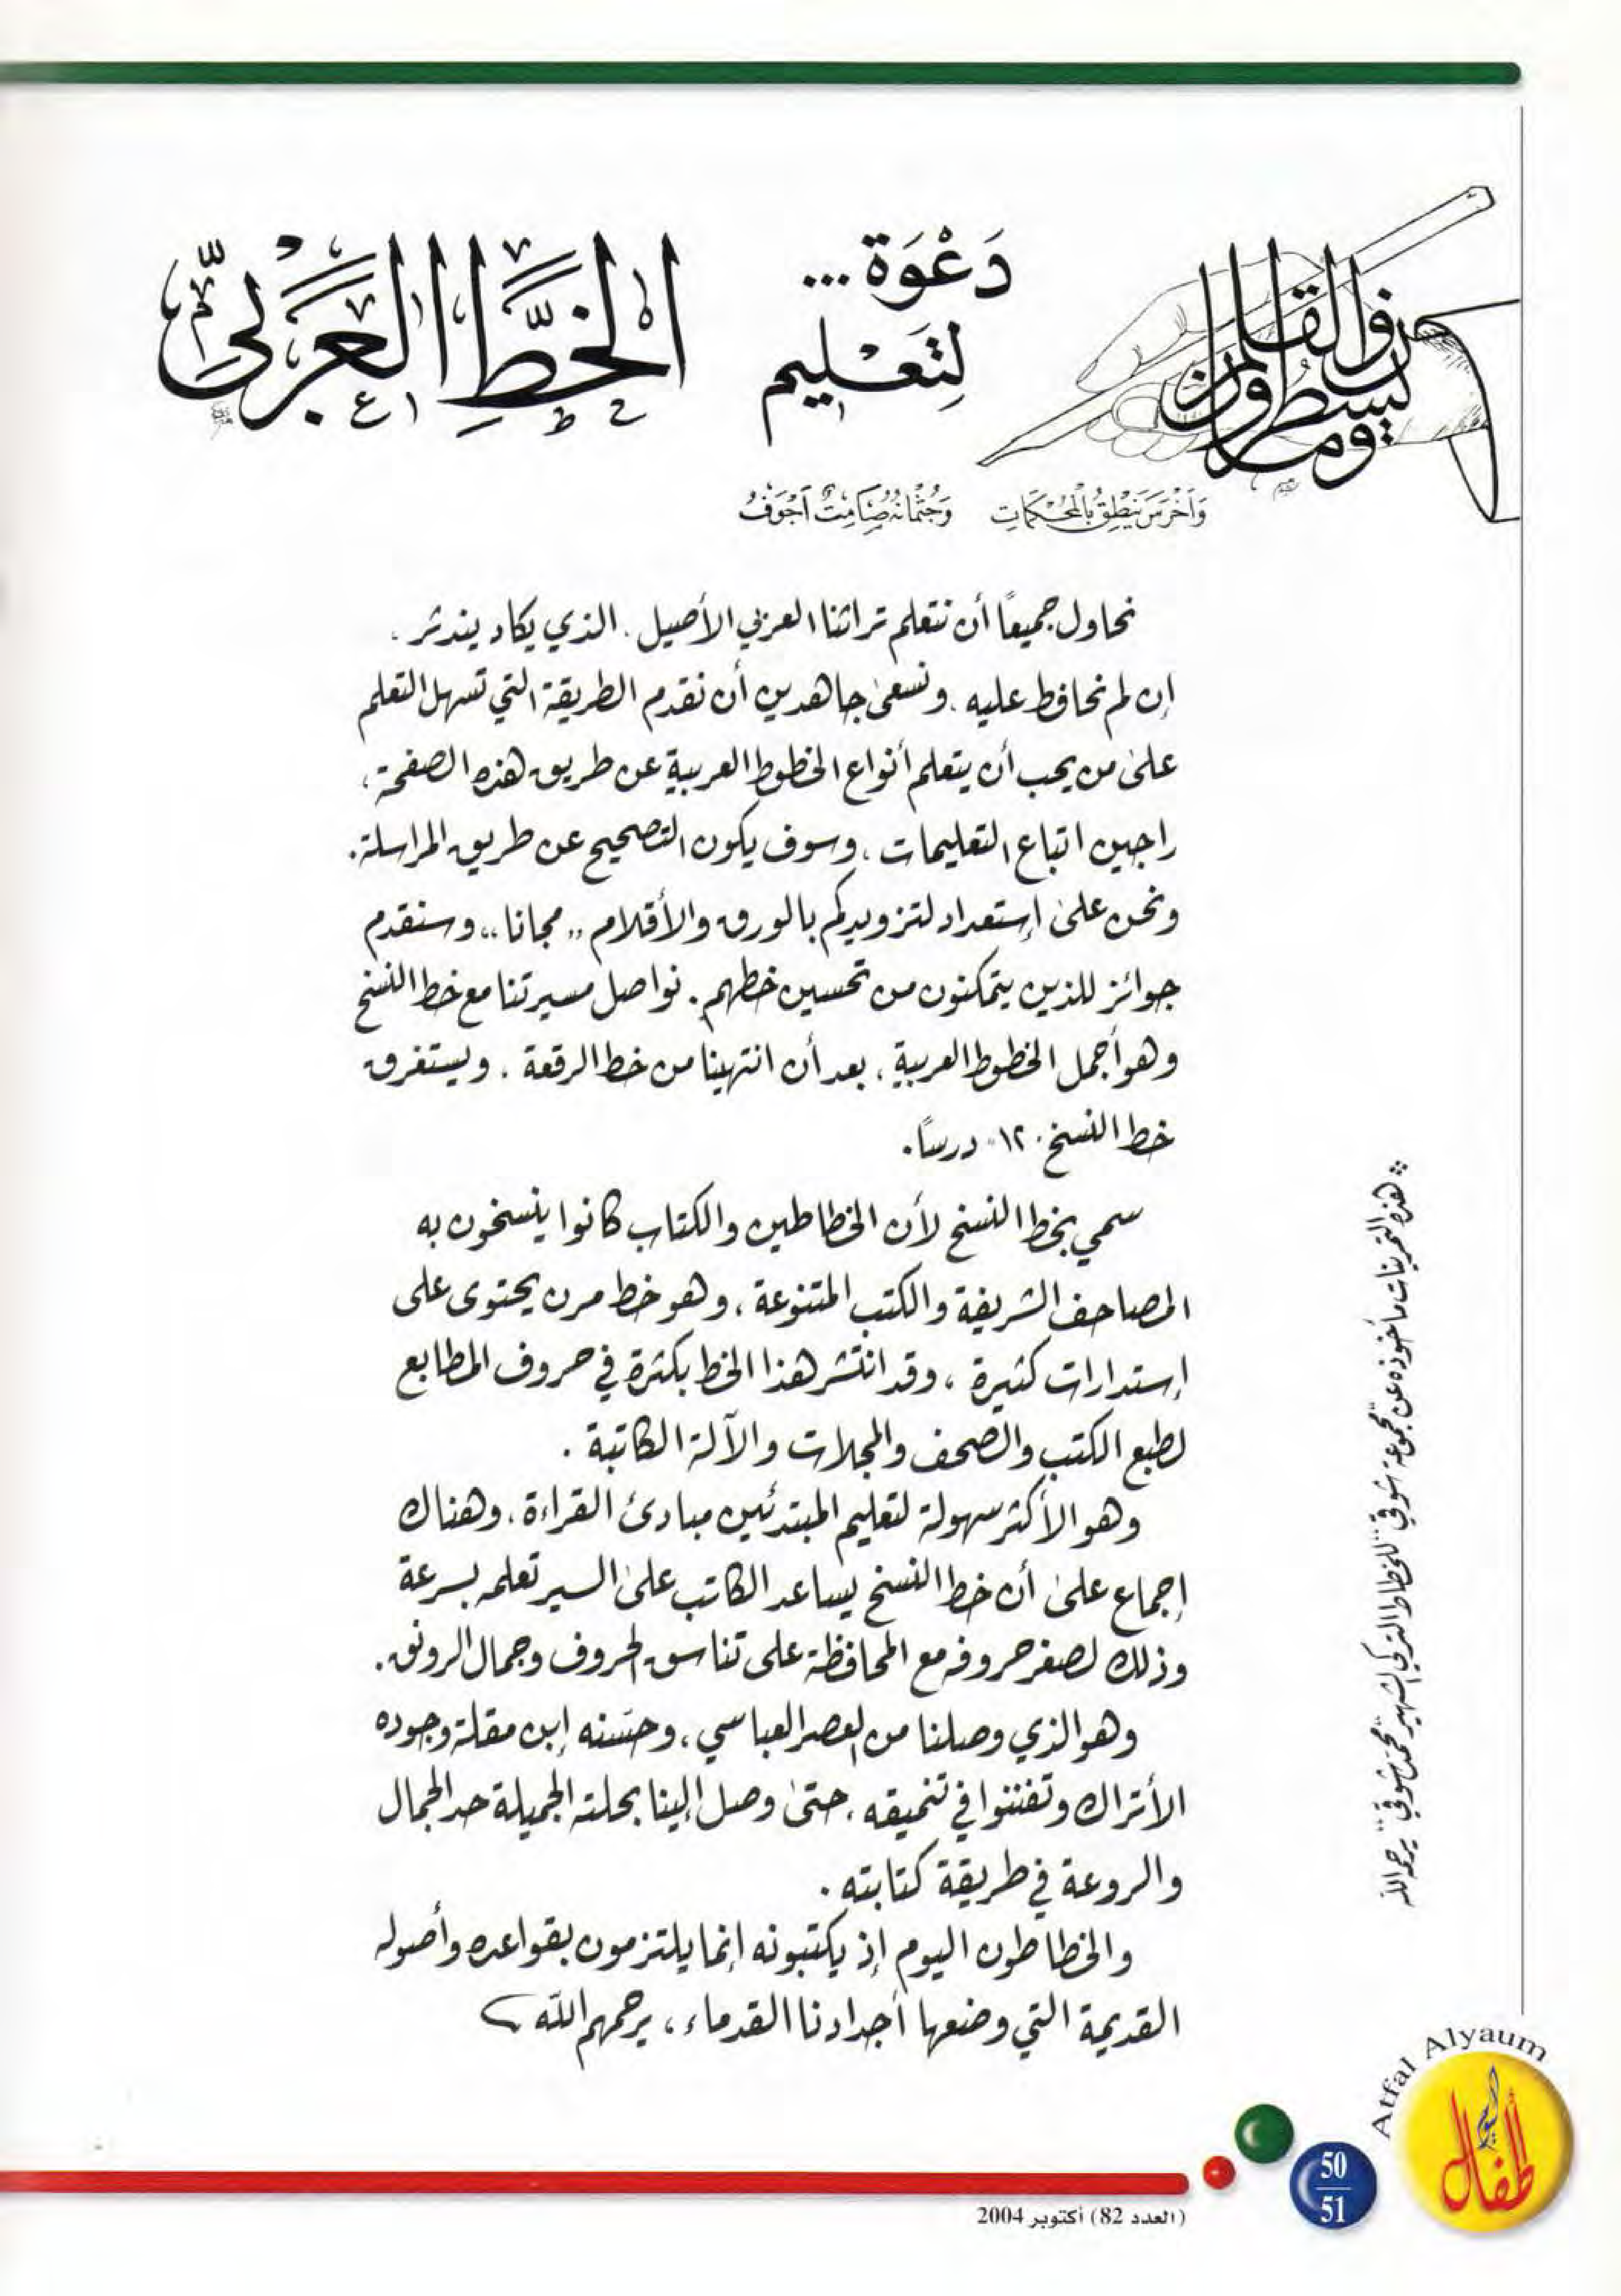 ن والقلم وما يسطرون
دَعْوَة...
لِتَعْلِيم
الخَطِّ العَرَبيِّ
وَأَخْرَسَ يَنْطِقُ بِالْمُحْكَمَاتِ وَجُثْمَانُهُ صَامِتٌ أَجْوَفُ
نحاول جميعاً أن نتعلم تراثنا العربي الأصيل، الذي يكاد يندثر،
إن لم نحافظ عليه، ونسعى جاهدين أن نقدم الطريقة التي تسهل التعلم
على من يحب أن يتعلم أنواع الخطوط العربية عن طريق هذه الصفحة،
راجين اتباع التعليمات، وسوف يكون التصحيح عن طريق المراسلة.
ونحن على إستعداد لتزويدكم بالورق والأقلام "مجانا" وسنقدم
جوائز للذين يتمكنون من تحسين خطهم. نواصل مسيرتنا مع خط النسخ
وهو أجمل الخطوط العربية، بعد أن انتهينا من خط الرقعة. ويستغرق
خط النسخ "١٢" درساً.
سمي بخط النسخ لأن الخطاطين والكتاب كانوا ينسخون به
المصاحف الشريفة والكتب المتنوعة، وهو خط مرن يحتوى على
إستدارات كثيرة، وقد انتشر هذا الخط بكثرة في حروف المطابع
لطبع الكتب والصحف والمجلات والآلة الكاتبة.
وهو الأكثر سهولة لتعليم المبتدئين مبادئ القراءة، وهناك
إجماع على أن خط النسخ يساعد الكاتب على السير تعلمه بسرعة
وذلك لصغر حروفه مع المحافظة على تناسق الحروف وجمال الرونق.
وهو الذي وصلنا من العصر العباسي، وحسّنه إبن مقلة وجوده
الأتراك وتفننوا في تنميقه، حتى وصل إلينا بحلته الجميلة حد الجمال
والروعة في طريقة كتابته.
والخطاطون اليوم إذ يكتبونه إنما يلتزمون بقواعده وأصوله
القديمة التي وضعها أجدادنا القدماء، يرحمهم الله
* هذه التمرينات مأخوذه عن "مجموعة شوقي" للخطاط التركي الشهير "محمد شوقي" يرحمه الله
Atfal Alyaum
أطفال اليوم
50
51
(العدد 82) أكتوبر 2004